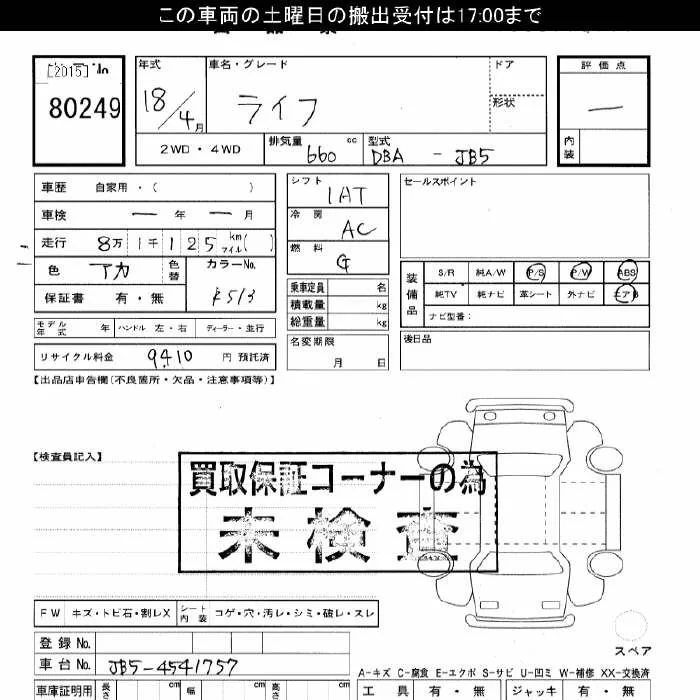 この車両の土曜日の搬出受付は17:00まで
[2015] No
80249
年式 車名・グレード ドア 評価点
18/4月 ライフ 形状 —
2WD・4WD 排気量 660 cc 型式 DBA - JB5 内装
車歴 自家用・( )
車検 — 年 — 月
走行 8万1千125 km マイル( )
色 アカ 色替 カラーNo. R513
保証書 有・無
モデル年式 年 ハンドル 左・右 ディーラー・並行
リサイクル料金 9410 円 預託済
シフト 1AT
冷房 AC
燃料 G
乗車定員 名
積載量 kg
総重量 kg
名変期限 月 日
セールスポイント
装備品 S/R 純A/W P/S P/W ABS
純TV 純ナビ 革シート 外ナビ エアB
ナビ型番:
後日品
【出品店申告欄(不良箇所・欠品・注意事項等)】
【検査員記入】
買取保証コーナーの為
未検査
FW キズ・トビ石・割レX シート内装 コゲ・穴・汚レ・シミ・破レ・スレ
登録No.
車台No. JB5-4541757
スペア
A-キズ C-腐食 E-エクボ S-サビ U-凹ミ W-補修 XX-交換済
車庫証明用 長さ cm 幅 cm 高さ cm 工具 有・無 ジャッキ 有・無